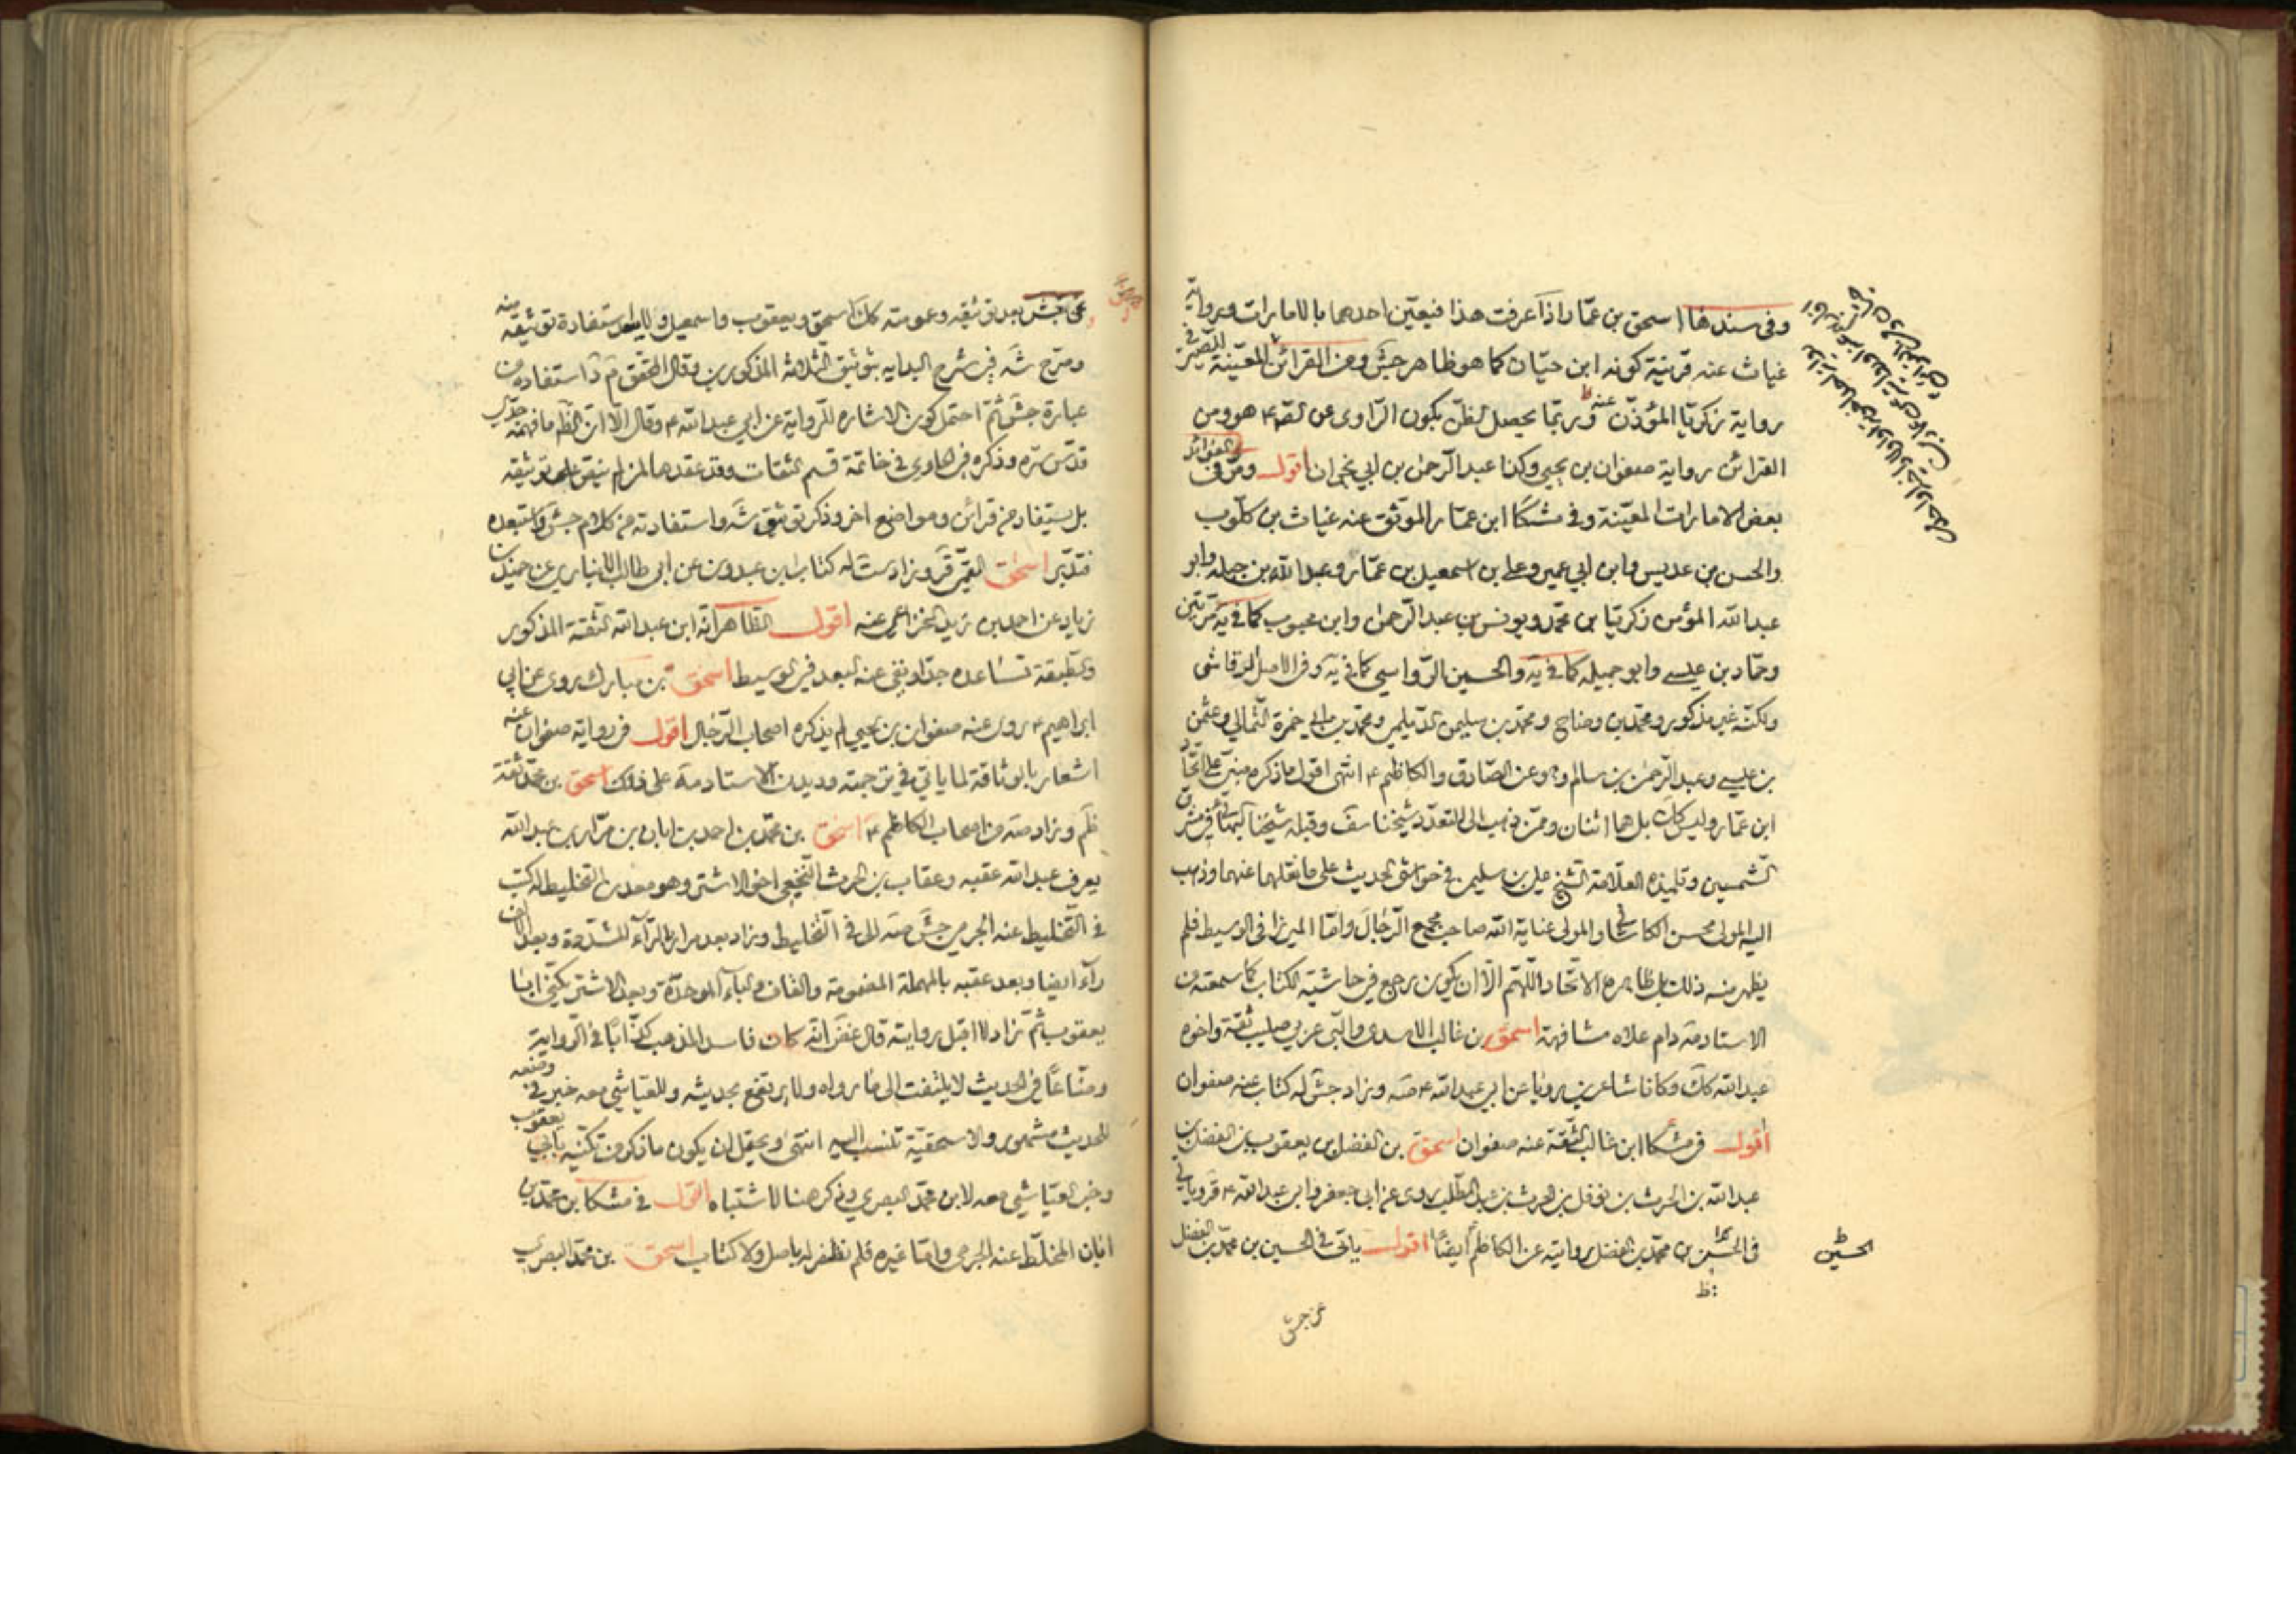 وفى سندها اسحق بن عمار اذا عرفت هذا فيعيّن احدهما بالامارات ورواية
غياث عنه قرينة كونه ابن حيّان كما هو ظاهر جش ومن القرائن المعيّنة للصيرفى
رواية زكريّا المؤذّن عنه وربّما يحصل الظنّ بكون الرّاوى عن الصّ هو ومن
القرائن رواية صفوان بن يحيى وكذا عبد الرّحمن بن ابي نجران اقول ومرّ فى الفوائد
بعض الامارات المعيّنة وفى مشكا ابن عمّار الموثّق عنه غياث بن كلّوب
والحسن بن عديس وابن ابي عمير وعلى بن اسمعيل بن عمّار وعبد اللّه بن جبله وابو
عبد اللّه المؤمن زكريّا بن محمّد ويونس بن عبد الرّحمن وابن محبوب كما فى يه مرّتين
وحمّاد بن عيسى وابو جميله كما فى يه والحسين الرّواسى كما فى يه وفى الاصل الرقاشى
ولكنّه غير مذكور ومحمّد بن وضاح ومحمّد بن سليمن الدّيلمى ومحمّد بن ابي حمزة الثّمالى وعثمن
بن عيسى وعبد الرّحمن بن سالم وهو عن الصّادق والكاظم ع انتهى اقول ما ذكره مبنىّ على اتّحاد
ابن عمّار وليس كك بل هما اثنان وممّن ذهب الى التعدّد شيخنا سف وقبله شيخنا البهائى فى مشرق
الشمسين وتلميذه العلّامة الشّيخ على بن سليمن فى حواشى الحديث على ما نقلهما عنهما وذهب
اليه المولى محسن الكاشى والمولى عناية اللّه صاحب مجمع الرّجال وامّا الميرزا فى الوسيط فلم
يظهر منه ذلك بل ظاهره الاتّحاد اللّهمّ الّا ان يكون رجع فى حاشية الكتاب كما سمعته من
الاستاد مه دام علاه مشافهة اسحق بن غالب الاسدى والبى عربى صليب ثقة واخوه
عبد اللّه كك وكانا شاعرين رويا عن ابي عبد اللّه ع صه وزاد جش له كتاب عنه صفوان
اقول فى مشكا ابن غالب الثّقة عنه صفوان اسحق بن الفضل بن يعقوب بن الفضل بن
عبد اللّه بن الحرث بن نوفل بن الحرث بن عبد المطّلب روى عن ابي جعفر وابي عبد اللّه ع قر وياتى
فى الحسن بن محمّد بن الفضل روايته عن الكاظم ايضا اقول ياتى فى الحسين بن محمّد بن الفضل
الحسين ظ
عن جش
عن جش بعد توثيقه وعمومته كك اسحق ويعقوب واسمعيل ولا يبعد استفادة توثيقه منه
وصرّح شه فى شرح البدايه بتوثيق الثلاثة المذكورين وقال المحقق م د استفاده من
عبارة جش ثمّ احتمل كون الاشاره للرّواية عن ابي عبد اللّه ع وقال الّا انّ الظّ ما فهمه جدّى
قدّس سرّه وذكره فى الحاوى فى خاتمة قسم الثقات وقد عقدها لمن لم ينصّ على توثيقه
بل يستفاد من قرائن ومواضع اخر وذكر توثيق شه واستفادته من كلام جش واستبعده
فتدبّر اسحق القمّى قر وزاد ست له كتاب ابن عبدون عن ابي طالب الانبارى عن حميد بن
زياد عن احمد بن زيد الخزاعى عنه اقول الظاهر انّه ابن عبد اللّه الثقة المذكور
والطّبقة تساعده جدّا ونفى عنه البعد فى الوسيط اسحق بن مبارك روى عن ابي
ابراهيم ع روى عنه صفوان بن يحيى لم يذكره اصحاب الرّجال اقول فى رواية صفوان عنه
اشعار بالوثاقة لما ياتى فى ترجمته وديدن الاستاد مه على ذلك اسحق بن محمّد ثقة
ظم وزاد صه من اصحاب الكاظم ع اسحق بن محمّد بن احمد بن ابان بن مرّار بن عبد اللّه
يعرف عبد اللّه عقبه وعقاب بن الحرث النّخعى اخو الاشتر وهو معدن التخليط له كتب
فى التّخليط عنه الجرمى جش صه الى فى التّخليط وزاد بعد مرار بالرّآء المشدّدة وبعد الالف
رآء ايضا وبعد عقبه بالمهملة المضمومة والقاف والباء الموحدة وبعد الاشتر يكنّى ابا
يعقوب ثمّ زاد لا اقبل روايته قال غض انّه كان فاسد المذهب كذّابا فى الرّواية
وضّاعا فى الحديث لا يلتفت الى ما رواه ولا يرتفع بحديثه وللعيّاشى معه خبر فى وضعه
للحديث مشهور والاسحقيّة تنسب اليه انتهى ويحتمل ان يكون ما ذكر من تكنيه بابى يعقوب
وخبر العيّاشى معه لابن محمّد البصرى وذكر هنا لاشتباه اقول فى مشكا بن محمّد بن
ابان المخلّط عنه الجرمى وامّا غيره فلم نظفر له باصل ولا كتاب اسحق بن محمّد البصرى